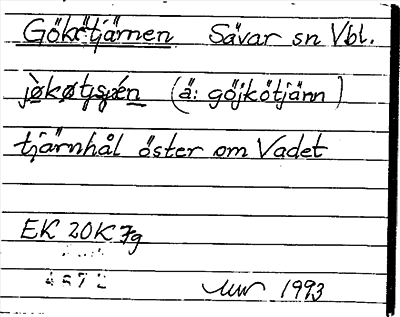 Gökötjärnen Sävar sn Vbl.
(ä: göjkötjänn)
tjärnhål öster om Vadet
EK 20K 7g
1993